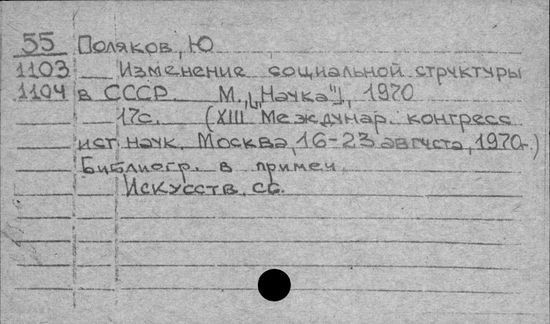 55 Поляков, Ю
1103 Изменение социальной структуры
1104 в СССР. М., „Наука", 1970
17с. (XIII Междунар. конгресс
ист. наук. Москва, 16-23 августа, 1970г.)
Библиогр. в примеч.
Искусств. сс.